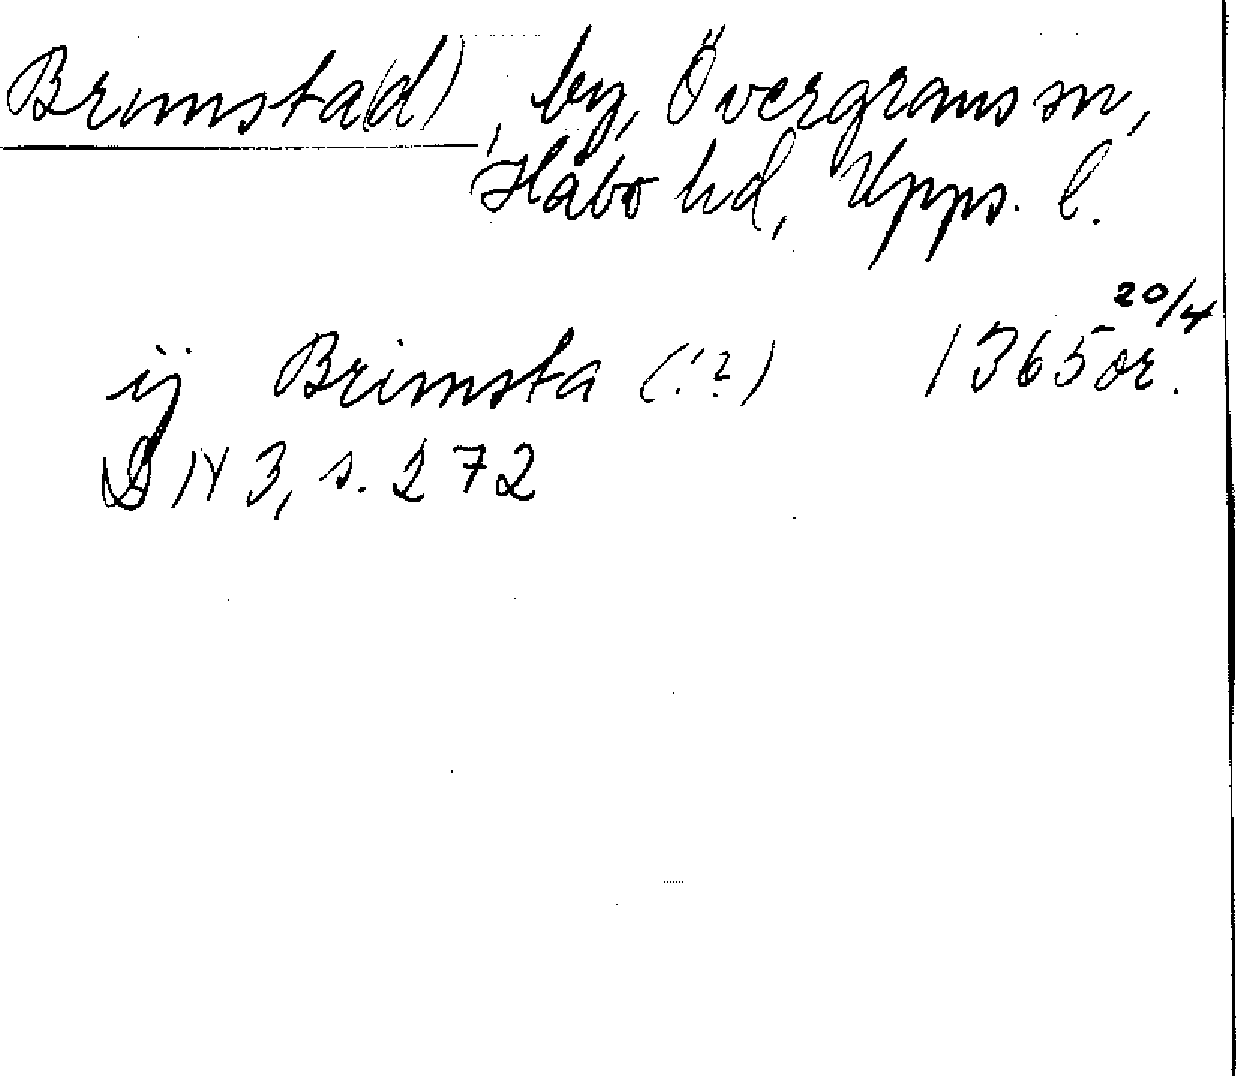 Brunnsta(d), by, Övergrans sn,
Håbo hd, Upps. l.
20/4
ij Brimsta (!?) 1365 or.
DN 3, s. 272